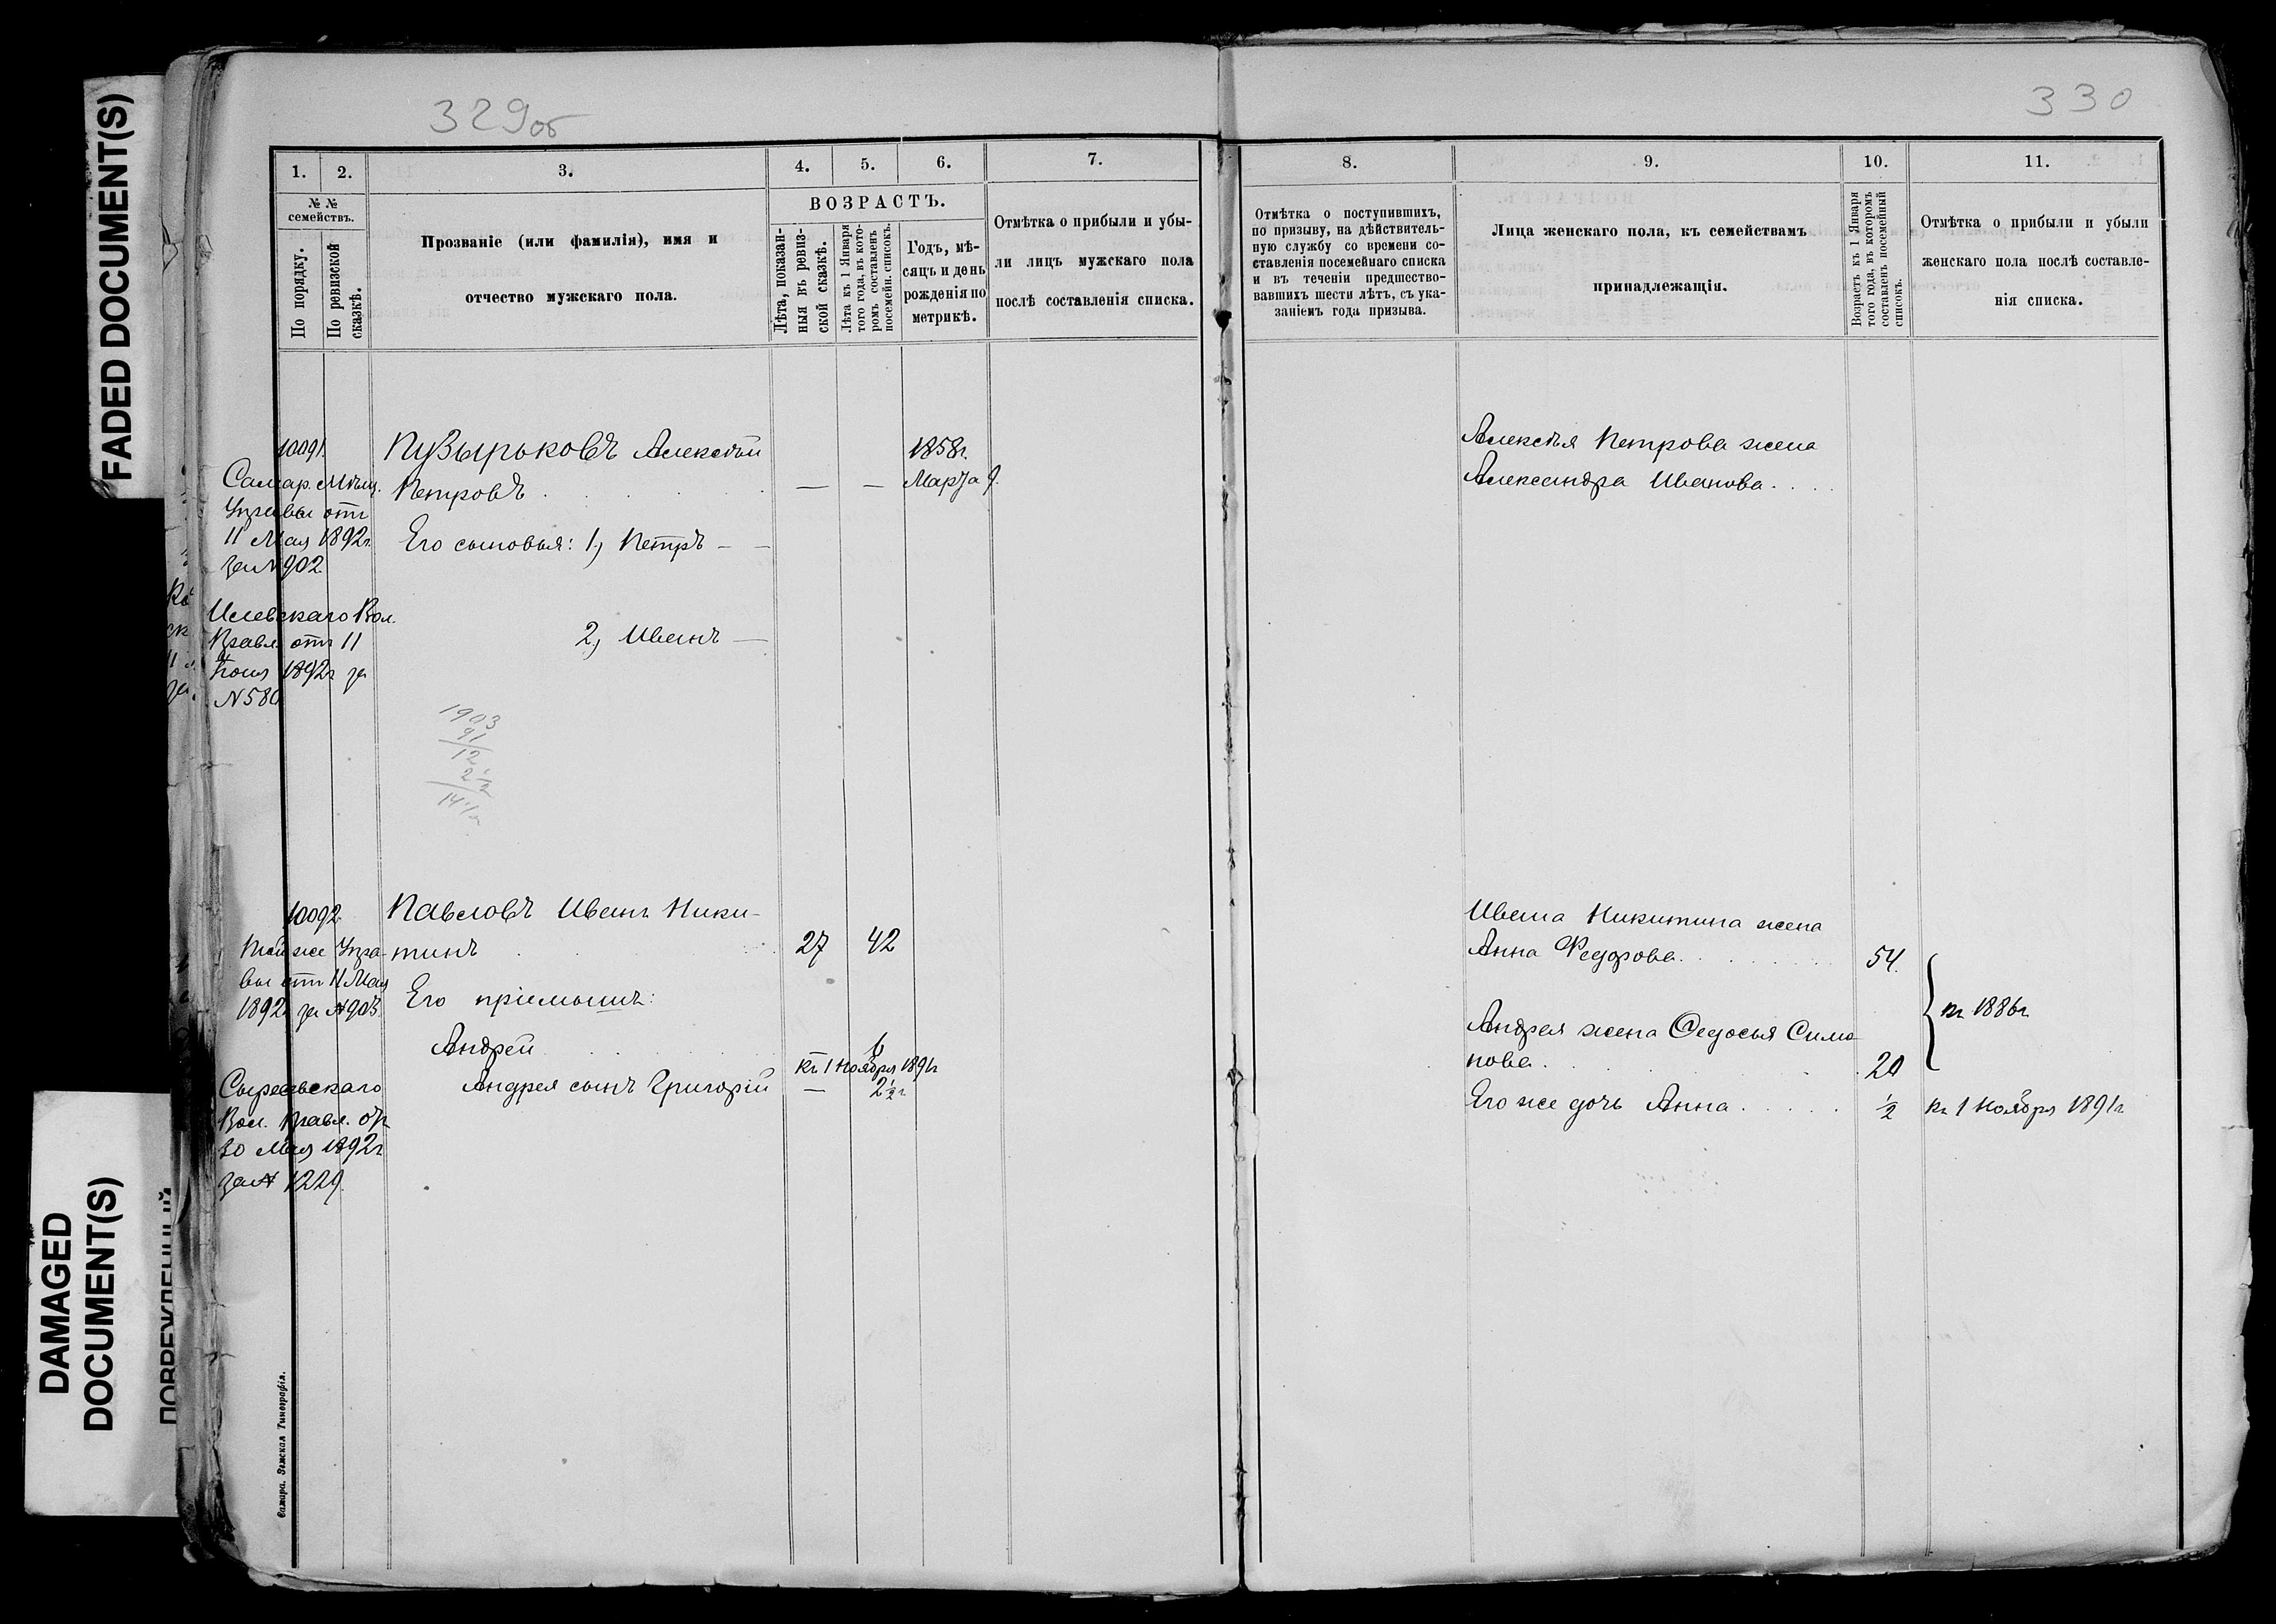 FADED DOCUMENT(S)
DAMAGED
DOCUMENT(S)
329об
1.
2.
3.
4.
5.
6.
7.
№ №
семействъ.
По порядку.
По ревизской
сказкѣ.
Прозваніе (или фамилія), имя и
отчество мужскаго пола.
ВОЗРАСТЪ.
Лѣта, показан-
ныя въ ревиз-
ской сказкѣ.
Лѣта къ 1 Января
того года, въ кото-
ромъ составленъ
посемейн. списокъ.
Годъ, мѣ-
сяцъ и день
рожденія по
метрикѣ.
Отмѣтка о прибыли и убы-
ли лицъ мужскаго пола
послѣ составленія списка.
10091.
Самар. Мѣщ.
Управы отъ
11 Мая 1892г.
за N 902.
Пузырьковъ Алексѣй
Петровъ . . . . . — —
1858г.
Марта 9.
Его сыновья: 1, Петръ — —
Вол.
Правл. отъ 11
1892г за
N 580
2, Иванъ —
1903
91
12
2 1/2
14 1/2
10092.
Той же Упра-
вы отъ 11 Мая
1892г за N 903.
Павловъ Иванъ Ники-
тинъ . . . 27 42
Его пріемышъ:
Андрей . . . . 6
къ 1 Ноября 1891г
Андрея сынъ Григорій — 2 1/2 г
Вол. Правл. отъ
30 Мая 1892г
за N 1229.
Самара. Земская Типографія.
330
8.
9.
10.
11.
Отмѣтка о поступившихъ,
по призыву, на дѣйствитель-
ную службу со времени со-
ставленія посемейнаго списка
и въ теченіи предшество-
вавшихъ шести лѣтъ, съ ука-
заніемъ года призыва.
Лица женскаго пола, къ семействамъ
принадлежащія.
Возрастъ къ 1 Января
того года, въ которомъ
составленъ посемейный
списокъ.
Отмѣтка о прибыли и убыли
женскаго пола послѣ составле-
нія списка.
Алексѣя Петрова жена
Александра Иванова. . . .
Ивана Никитина жена
Анна Федорова. . . . . . 54.
къ 1886г
Андрея жена Федосья Симо
нова. . . . . . . 20
Его же дочь Анна . . . . . 1/2 къ 1 Ноября 1891г